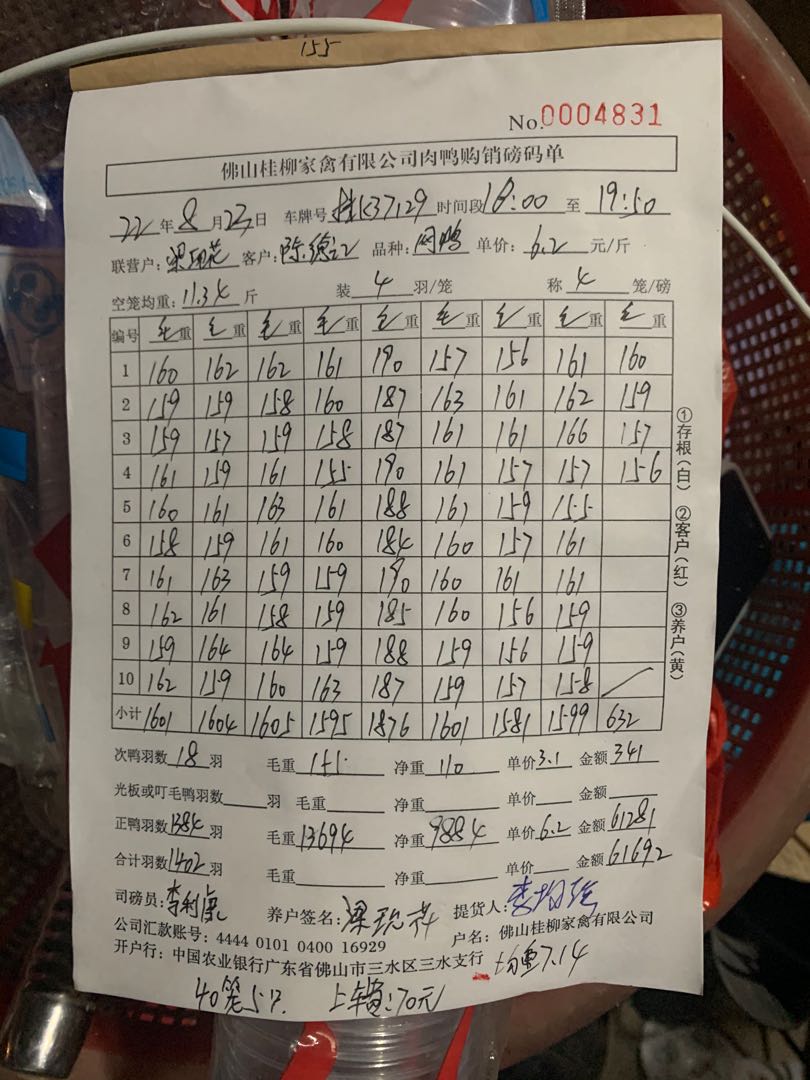 155
No.0004831
佛山桂柳家禽有限公司肉鸭购销磅码单
22年8月23日 车牌号 K37129 时间段18:00 至 19:50
联营户: 客户:陈德江 品种: 鸭 单价:6.2 元/斤
空笼均重:11.34 斤 装 4 羽/笼 称 4 笼/磅
编号 毛重 毛重 毛重 毛重 毛重 毛重 毛重 毛重 毛重
1 160 162 162 161 190 157 156 161 160
2 159 159 158 160 187 163 161 162 159
3 159 157 159 158 187 161 161 166 157
4 161 159 161 155 190 161 157 157 156
5 160 161 163 161 188 161 159 155
6 158 159 161 160 184 160 157 161
7 161 163 159 159 190 160 161 161
8 162 161 158 159 185 160 156 159
9 159 164 164 159 188 159 156 159
10 162 159 160 163 187 159 157 158
小计 1601 1604 1605 1595 1876 1601 1581 1599 632
①存根(白) ②客户(红) ③养户(黄)
次鸭羽数18羽 毛重155 净重110 单价3.1 金额341
光板或叮毛鸭羽数 羽 毛重 净重 单价 金额
正鸭羽数1384羽 毛重13694 净重9884 单价6.2 金额61281
合计羽数1402羽 毛重 净重 单价 金额61692
司磅员:李利康 养户签名: 提货人:
公司汇款账号:4444 0101 0400 16929 户名:佛山桂柳家禽有限公司
开户行:中国农业银行广东省佛山市三水区三水支行 均重7.14
40笼5只 上车费:70元